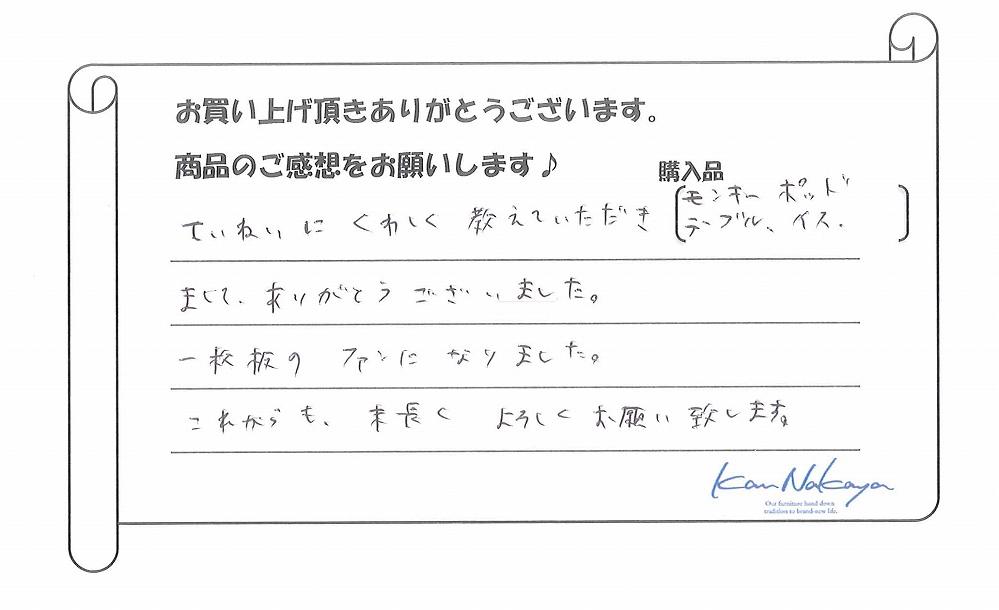 お買い上げ頂きありがとうございます。
商品のご感想をお願いします♪
購入品
モンキーポッド
テーブル、イス.
ていねいに くわしく 教えていただき
まして、ありがとう ございいました。
一枚板の ファンに なりました。
これからも、末長く よろしく お願い 致します。
Kan Nakaya
Our furniture hand down
tradition to brand-new life.